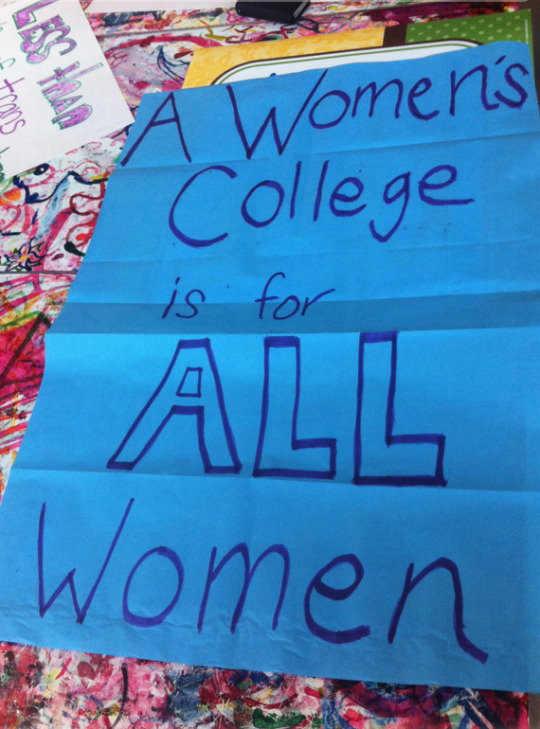 LESS than
A Women's
College
is for
ALL
Women